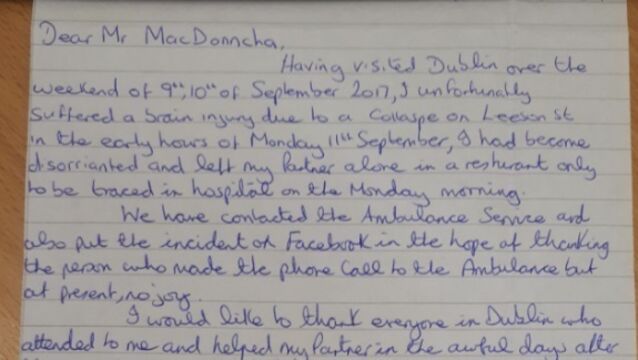 Dear Mr MacDonncha,
Having visited Dublin over the
weekend of 9th, 10th of September 2017, I unfortunatly
suffered a brain injury due to a Collaspe on Leeson St
in the early hours of Monday 11th September, I had become
disorrianted and left my Partner alone in a resturant only
to be traced in hospital on the Monday morning.
We have contacted the Ambulance Service and
also put the incident on Facebook in the hope of thanking
the person who made the phone Call to the Ambulance but
at present, no joy.
I would like to thank everyone in Dublin who
attended to me and helped my Partner in the awful days after